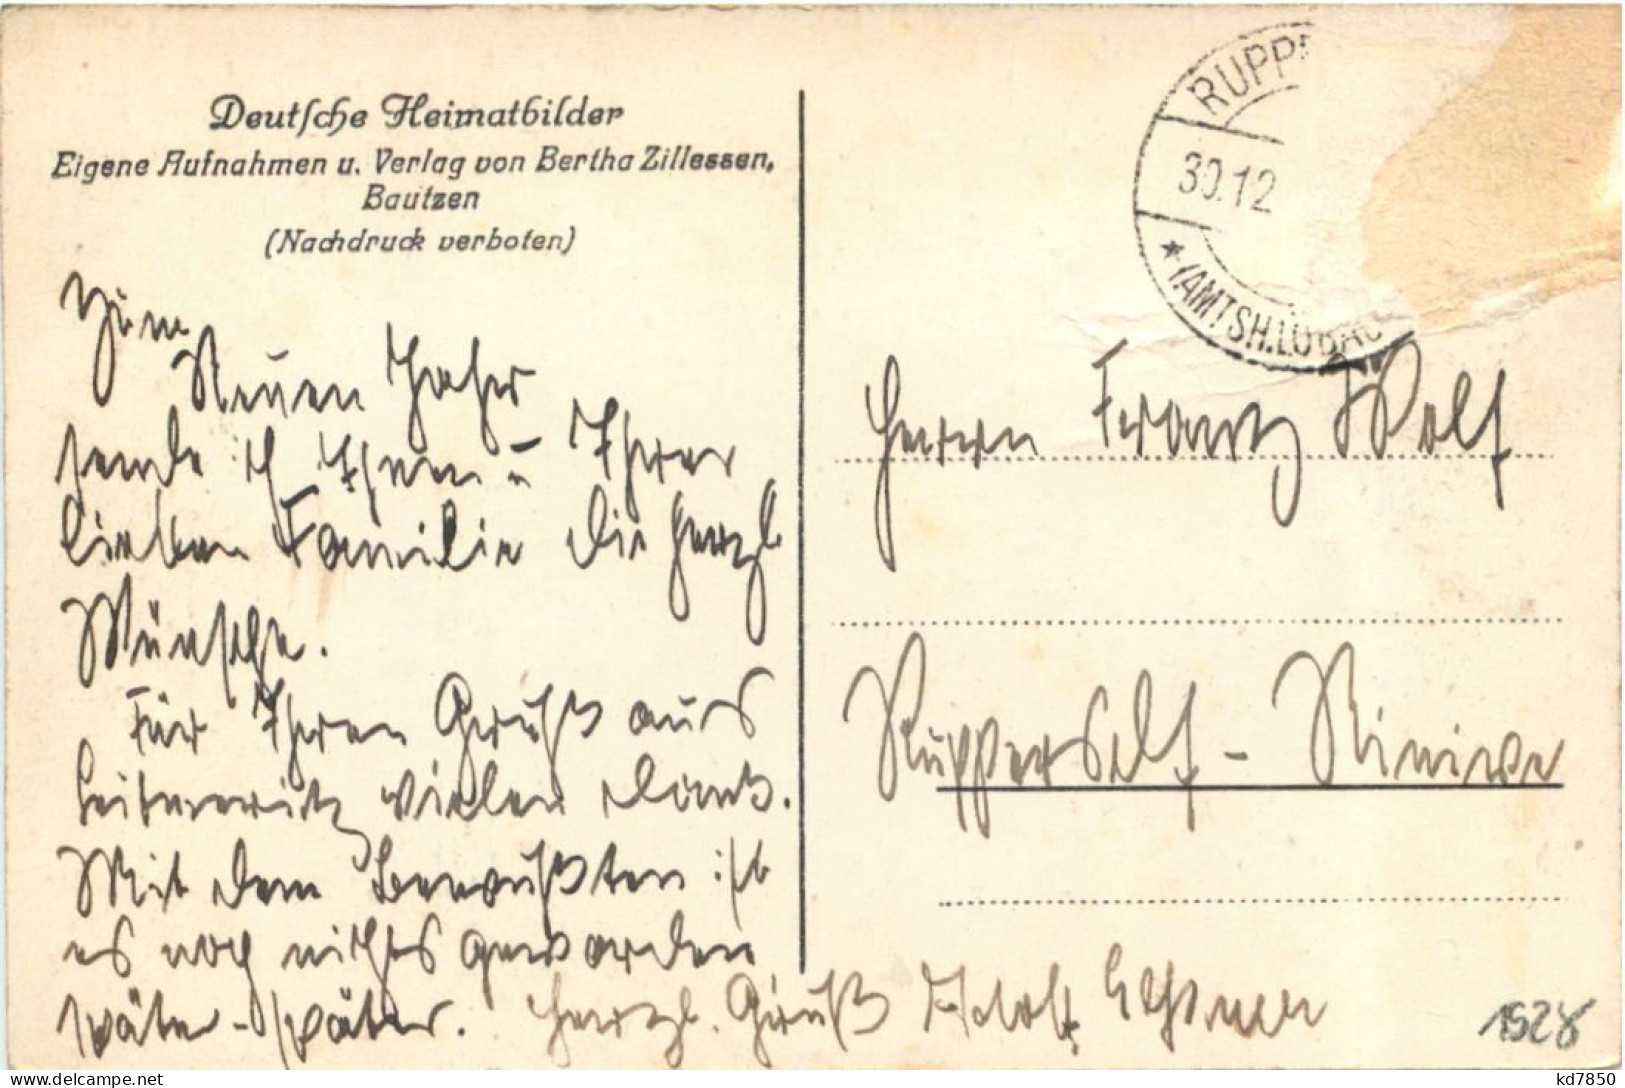 Deutsche Heimatbilder
Eigene Aufnahmen u. Verlag von Bertha Zillessen,
Bautzen
(Nachdruck verboten)
Zum
Neuen Jahr
sende ich Ihnen u. Ihrer
lieben Familie die herzl
Wünsche.
Für Ihren Gruß aus
Leitmeritz vielen Dank.
Mit dem Bewußten ist
es noch nichts geworden
später - später. Herzl. Gruß Adolf
RUPP
30.12
(AMTSH.LÖBAU
Herrn Franz Wolf
Ruppersdf - Ninive
1528
kd7850